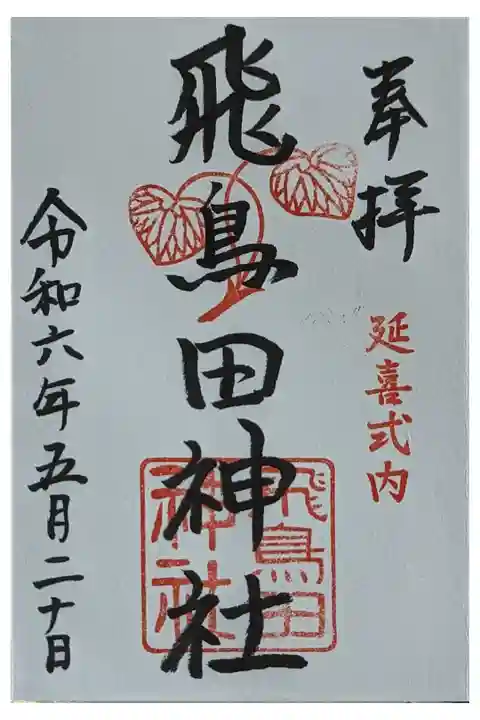 奉拝
延喜式内
飛鳥田神社
飛鳥田
神社
令和六年五月二十日